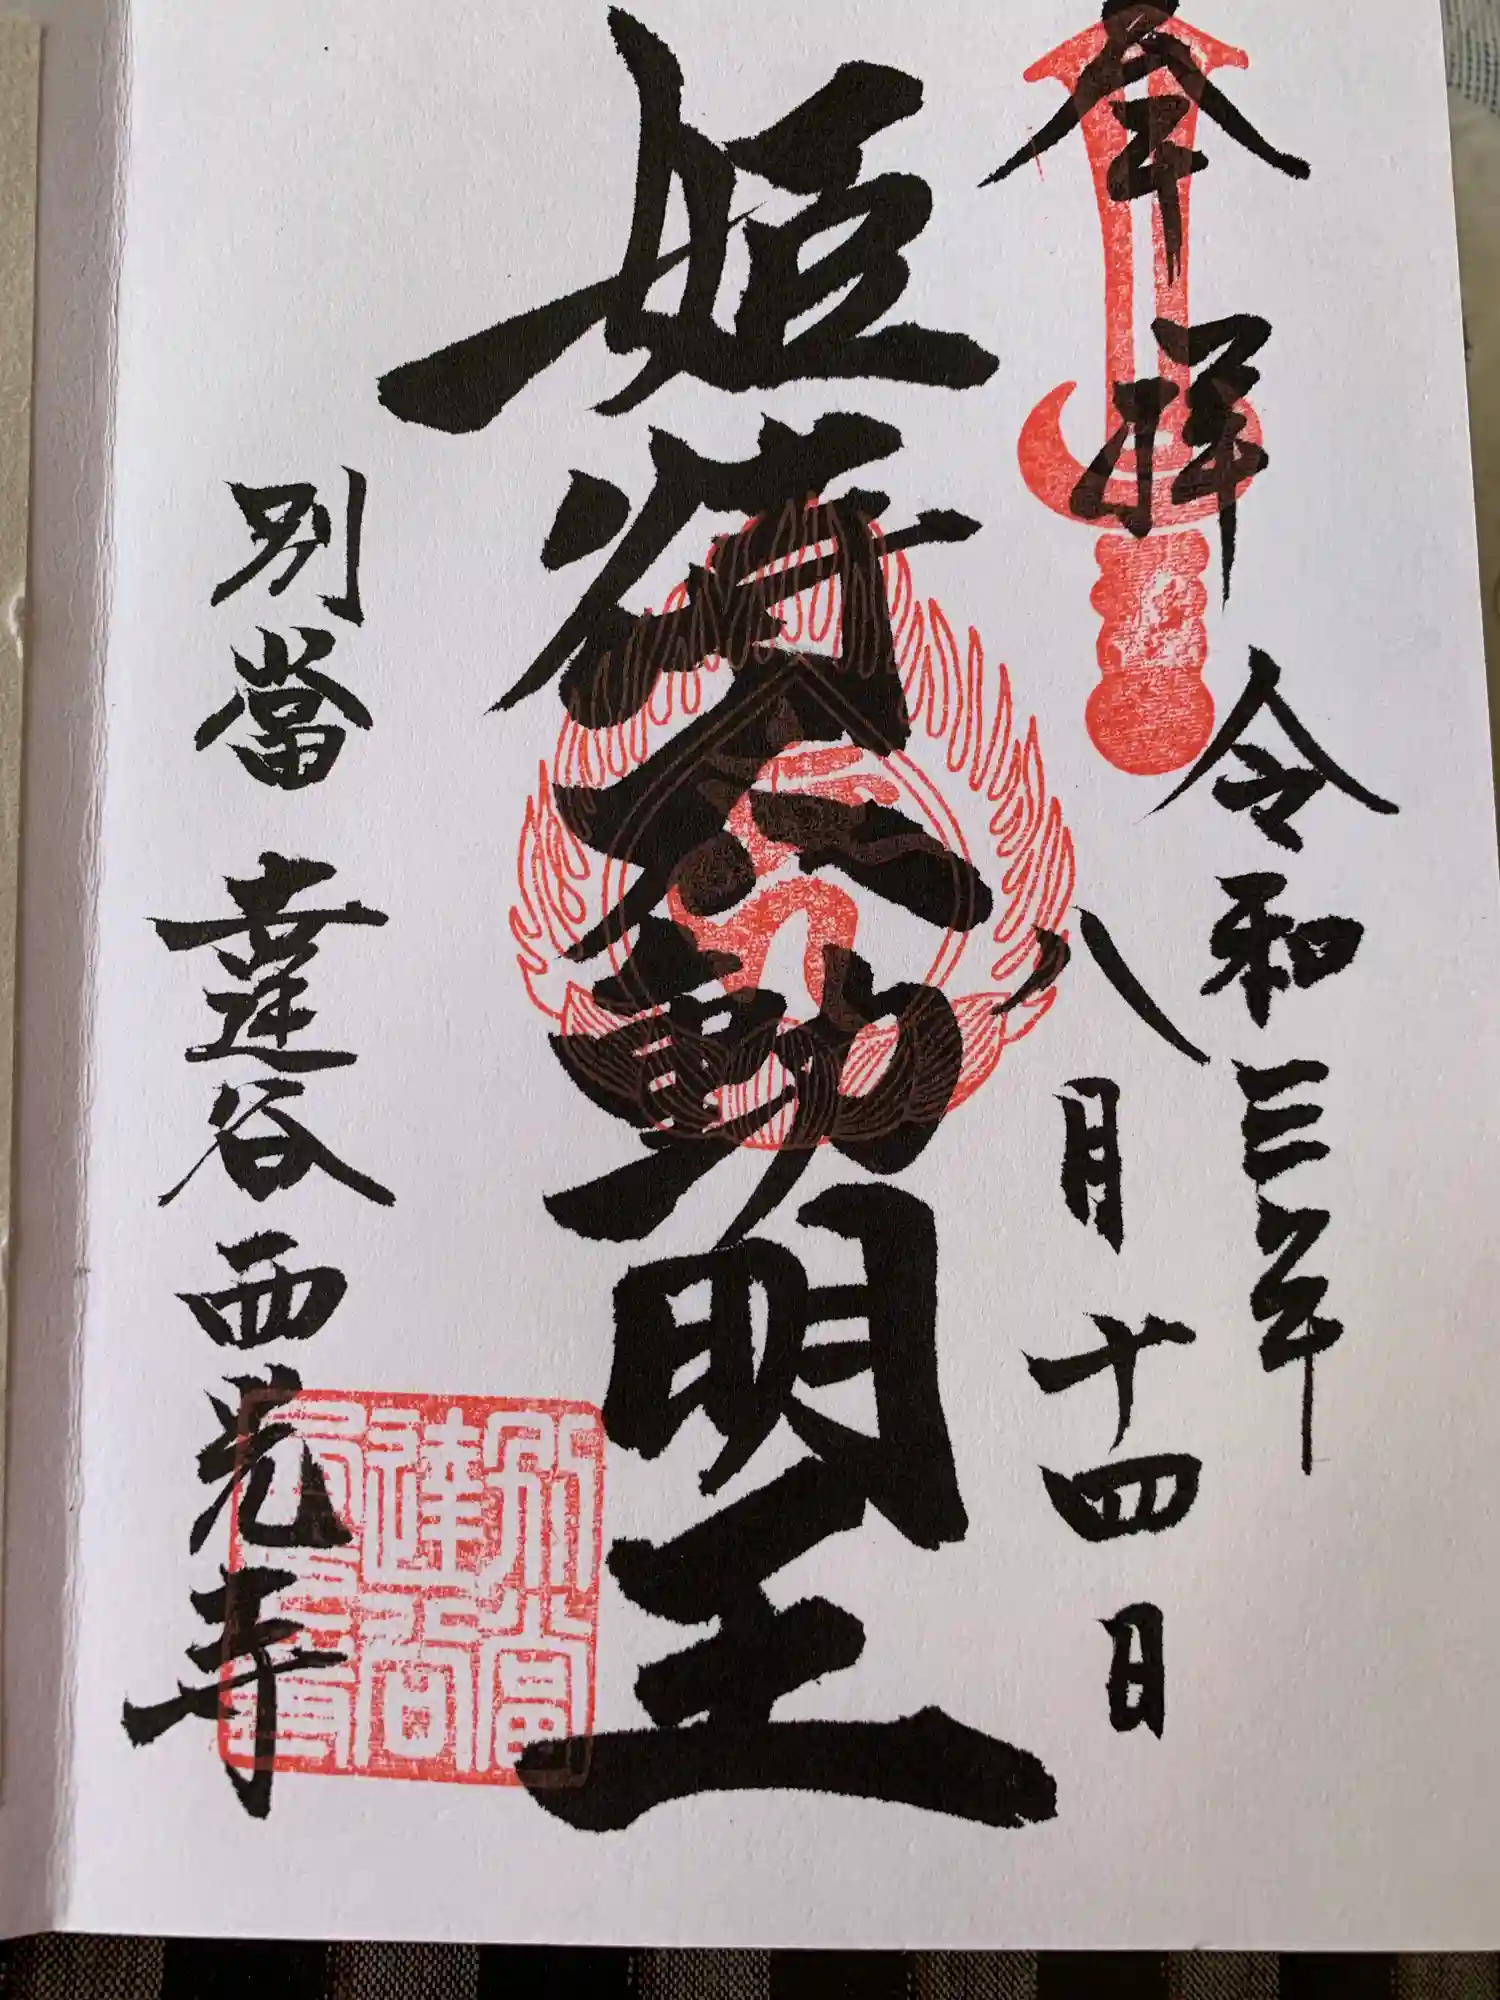 奉拝
令和三年
八月十四日
姫待不動明王
別當 達谷西光寺
別當
達谷